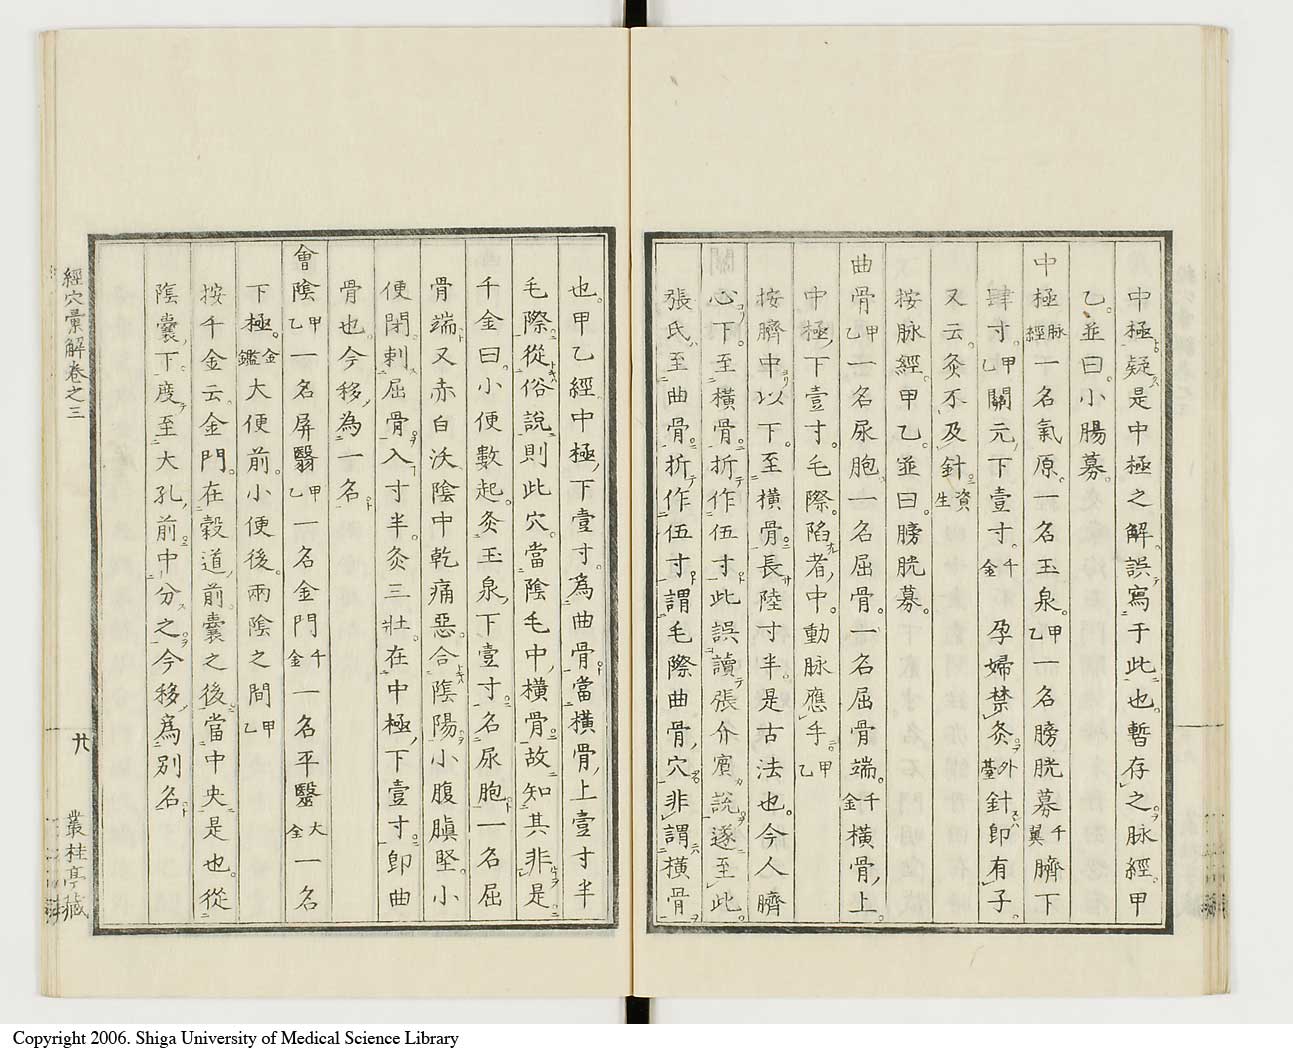 中極疑是中極之解誤寫于此也。暫存之脉經。甲
乙。並曰。小腸募。
中極脉經一名氣原。一名玉泉。甲乙一名膀胱募千翼臍下
肆寸。甲乙關元下壹寸。千金孕婦禁灸外臺針即有子。
又云。灸不及針資生
按脉經。甲乙。並曰。膀胱募。
曲骨甲乙一名尿胞一名屈骨。一名屈骨端。千金橫骨上。
中極下壹寸。毛際陷者中。動脉應手。甲乙
按臍中以下。至橫骨長陸寸半。是古法也。今人臍
心下。至橫骨折作伍寸。此誤讀張介賓說遂至此。
張氏至曲骨折作伍寸。謂毛際曲骨穴。非謂橫骨
也。甲乙經。中極下壹寸。為曲骨。當橫骨上壹寸半
毛際。從俗說則此穴。當陰毛中橫骨。故知其非是
千金曰。小便數起。灸玉泉下壹寸。名尿胞一名屈
骨端又赤白沃陰中乾痛惡。合陰陽小腹䐜堅。小
便閉。刺屈骨入寸半。灸三壯。在中極下壹寸。即曲
骨也。今移為一名
會陰甲乙一名屏翳甲乙一名金門千金一名平翳大金一名
下極。金鑑大便前。小便後。兩陰之間甲乙
按千金云。金門。在穀道前囊之後當中央是也。從
陰囊下。度至大孔前中分之。今移為別名
經穴彙解卷之三
廿
叢桂亭藏
Copyright 2006. Shiga University of Medical Science Library